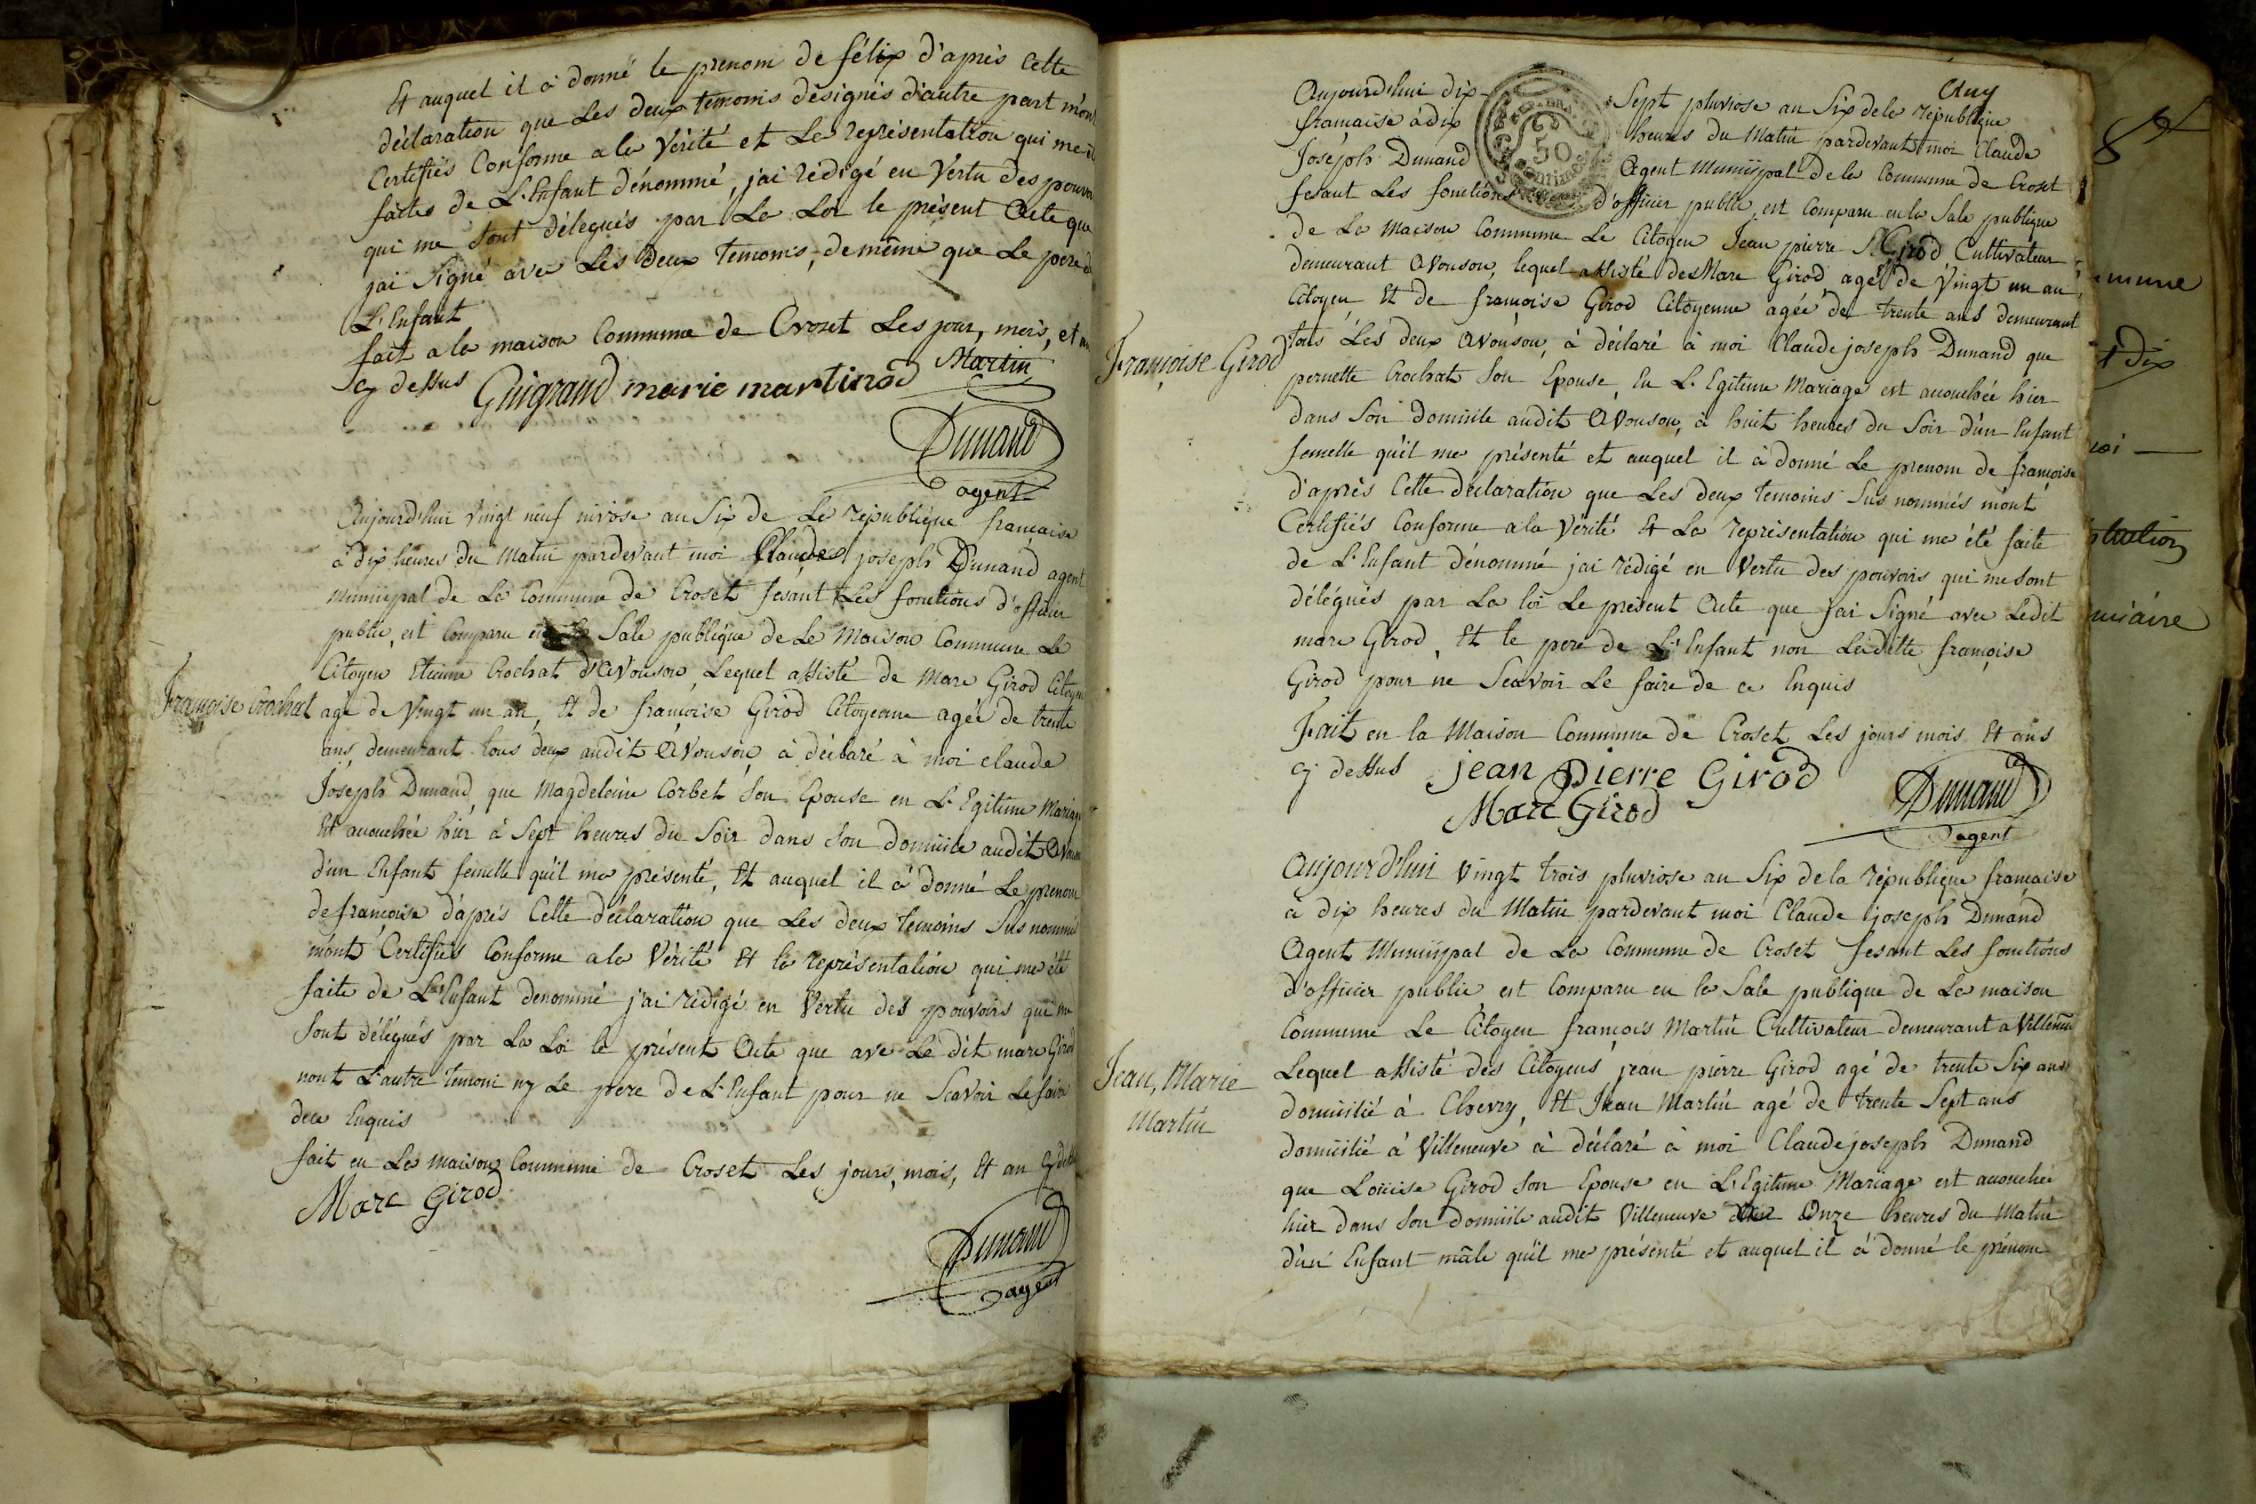 Et auquel il à donné le prenom de félix d'après Cette
déclaration que Les deux temoins désignés d'autre part m'ont
Certifiés Conforme a la Vérité et La représentation qui me
faites de L'Enfant dénommé, j'ai rédigé en Vertu des pouvoi
qui me sont délegués par La Loi le présent Acte que
jai Signé avec Les Deux Temoins, de même que Le pere d
L'Enfant
fait a la maison Commune de Crozet Les jour, mois, et an
cy dessus Guigrand marie martinod Martin
Dunand
agent
Aujourd'hui Vingt neuf nivose an Six de La république française
à dix heures du Matin pardevant moi Claude joseph Dunand agent
municipal de La Commune de Croset fesant Les fonctions d'officier
public, est Comparu en la Sale publique de La Maison Commune Le
Citoyen Etienne Crochat d'Avouson, Lequel assisté de Marc Girod Citoyen
Françoise Crochat
agé de Vingt un an, Et de françoise Girod Citoyenne agée de trente
ans, demeurant tous deux audit Avouson, à déclaré à moi claude
Joseph Dunand, que Magdeleine Corbet Son Epouse en L'Egitime Mariage
Et accouchée hier à Sept heures du Soir dans Son domicile audit Avouson
d'un Enfant femelle qu'il ma présenté, Et auquel il à donné Le prenom
de françoise d'après Cette déclaration que Les deux temoins Sus nommés
m'ont Certifiés Conforme a la Vérité Et la représentation qui ma été
faite de L'Enfant denommé j'ai rédigé en Vertu des pouvoirs qui me
Sont délégués par La Loi le présent Acte que avec Le dit marc Girod
nont L'autre temoin ny Le pere de L'Enfant pour ne Scavoir Le faire
dece Enquis
fait en La maison Commune de Croset Les jours, mois, Et an cy dessus
Marc Girod
Dunand
agent
Aujourd'hui dix-Sept pluviose an Six de la république
française à dix heures du Matin pardevant moi Claude
Joséph Dunand Agent Municipal de la Commune de Croset
fesant Les fonctions d'officier public, est Comparu en la Sale publique
de La Maison Commune Le Citoyen Jean pierre Girod, Cultivateur
demeurant Avouson, lequel assisté des Marc Girod, agé de Vingt un an
Citoyen Et de françoise Girod Citoyenne agée de trente ans demeurant
Françoise Girod
tous Les deux Avouson, à déclaré à moi Claude joseph Dunand que
pernette Crochat Son Epouse, En L'Egitime Mariage est accouchée hier
dans Son domicile audit Avouson, à huit heures du Soir d'un Enfant
femelle qu'il ma présenté et auquel il à donné Le prenom de françoise
d'après Cette déclaration que Les deux temoins Sus nommés m'ont
Certifiés Conforme a la Vérité Et La représentation qui ma été faite
de L'Enfant dénommé jai rédigé en Vertu des pouvoirs qui me Sont
délégués par La loi Le présent Acte que j'ai Signé avec Ledit
marc Girod, Et le pere de L'Enfant non Ladite françoise
Girod pour ne Scavoir Le faire de ce Enquis
Fait en la Maison Commune de Croset Les jours mois Et ans
cy dessus jean pierre Girod
Marc Girod
Dunand
agent
Aujourd'hui Vingt trois pluviose an Six de la république française
à dix heures du Matin pardevant moi Claude joseph Dunand
Agent Municipal de La Commune de Croset fesant Les fonctions
d'officier public est Comparu en la Sale publique de La maison
Commune Le Citoyen françois Martin Cultivateur demeurant a Villeneuve
Lequel assisté des Citoyens jean pierre Girod agé de trente Six ans
Jean, Marie
Martin
domicilié à Chevry, Et Jean Martin agé de trente Sept ans
domicilié à Villeneuve à déclaré à moi Claude joseph Dunand
que Loüise Girod Son Epouse en L'Egitime Mariage est accouchée
hier dans Son domicile audit Villeneuve Onze heures du Matin
d'un Enfant mâle qu'il ma présenté et auquel il à donné le prénom